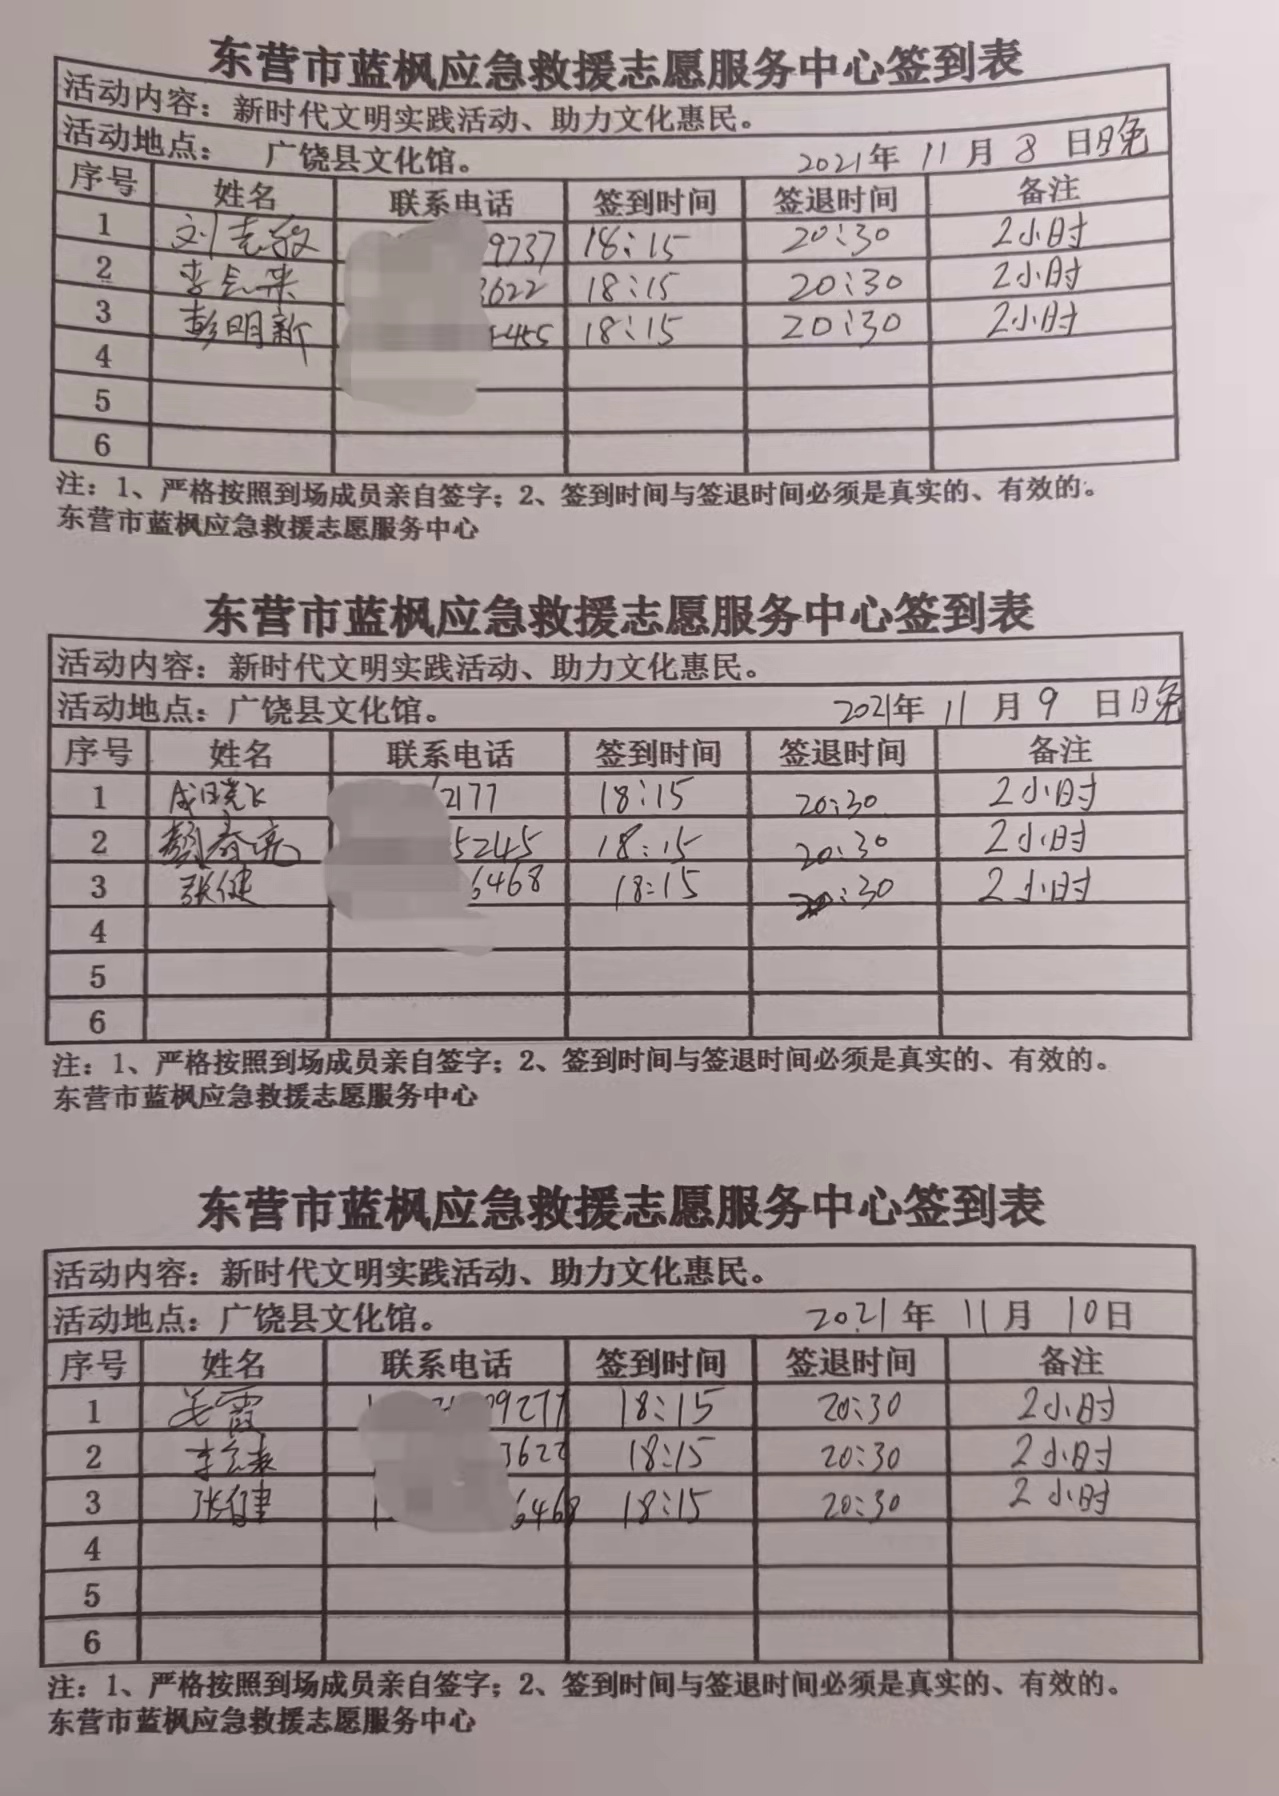 东营市蓝枫应急救援志愿服务中心签到表
活动内容：新时代文明实践活动、助力文化惠民。
活动地点： 广饶县文化馆。 2021年 11 月 8 日晚
序号 姓名 联系电话 签到时间 签退时间 备注
1 刘志敏 9737 18:15 20:30 2小时
2 3622 18:15 20:30 2小时
3 彭明新 455 18:15 20:30 2小时
4
5
6
注：1、严格按照到场成员亲自签字；2、签到时间与签退时间必须是真实的、有效的。
东营市蓝枫应急救援志愿服务中心
东营市蓝枫应急救援志愿服务中心签到表
活动内容：新时代文明实践活动、助力文化惠民。
活动地点：广饶县文化馆。 2021年 11 月 9 日晚
序号 姓名 联系电话 签到时间 签退时间 备注
1 成晓飞 2177 18:15 20:30 2小时
2 5245 18:15 20:30 2小时
3 张健 6468 18:15 20:30 2小时
4
5
6
注：1、严格按照到场成员亲自签字；2、签到时间与签退时间必须是真实的、有效的。
东营市蓝枫应急救援志愿服务中心
东营市蓝枫应急救援志愿服务中心签到表
活动内容：新时代文明实践活动、助力文化惠民。
活动地点：广饶县文化馆。 2021年 11月 10日
序号 姓名 联系电话 签到时间 签退时间 备注
1 9277 18:15 20:30 2小时
2 3622 18:15 20:30 2小时
3 张健 6468 18:15 20:30 2小时
4
5
6
注：1、严格按照到场成员亲自签字；2、签到时间与签退时间必须是真实的、有效的。
东营市蓝枫应急救援志愿服务中心